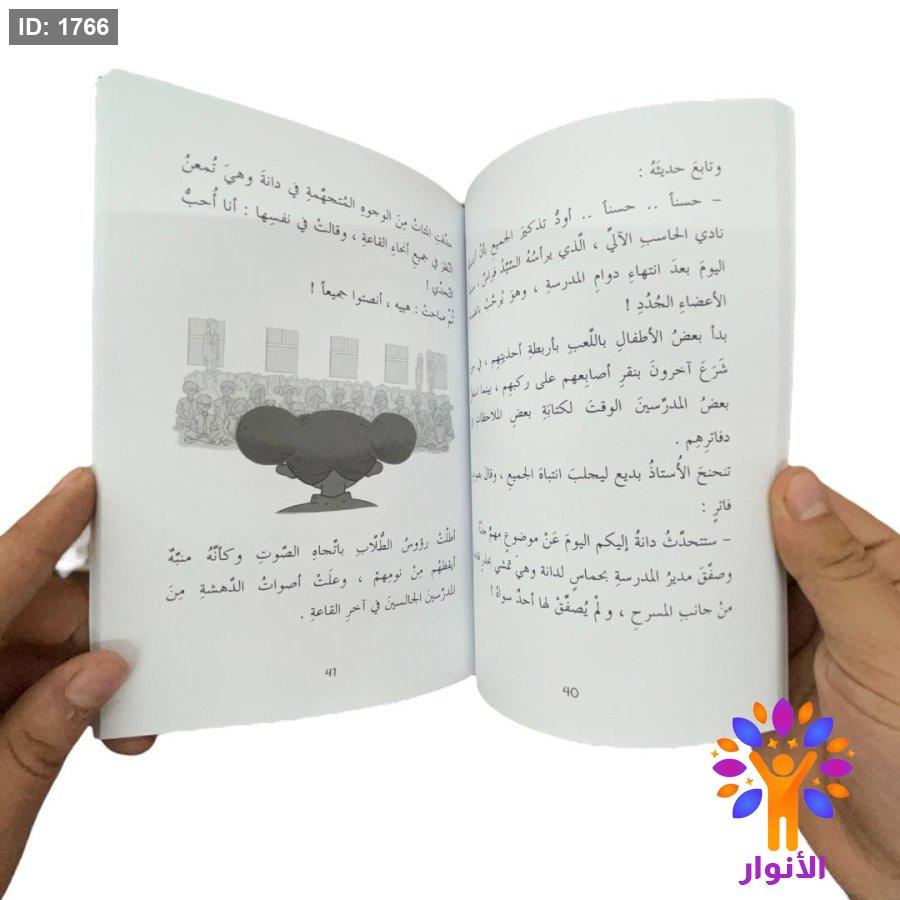 ID: 1766
وتابعَ حديثَهُ :
– حسناً .. حسناً .. أودُّ تذكيرَ الجميعِ بأنَّ
نادي الحاسبِ الآليِّ ، الَّذي يرأسُهُ السَّيِّدُ فراسُ ،
اليومَ بعدَ انتهاءِ دوامِ المدرسةِ ، وهوَ يُرحِّبُ
الأعضاءِ الجُدُدِ !
بدأ بعضُ الأطفالِ باللَّعبِ بأربطةِ أحذيتِهِم ، في
شَرَعَ آخرونَ بنقرِ أصابعِهم على ركبِهم ، بينما
بعضُ المدرِّسينَ الوقتَ لكتابةِ بعضِ الملاحظات
دفاترِهِم .
تنحنحَ الأُستاذُ بديع ليجلبَ انتباهَ الجميعِ ، وقالَ
فاترٍ :
– ستتحدَّثُ دانةُ إليكم اليومَ عَنْ موضوعٍ مهمٍّ جدًّا
وصفَّقَ مديرُ المدرسةِ بحماسٍ لدانة وهي تمشي
مِنْ جانبِ المسرحِ ، ولمْ يُصفِّقْ لها أحدٌ سواهُ !
40
حدَّقتِ المئاتُ مِنَ الوجوهِ المُتجهِّمةِ في دانةَ وهيَ تُمعنُ
النَّظرَ في جميعِ أنحاءِ القاعةِ ، وقالتْ في نفسِها : أنا أُحبُّ
التَّحدِّي !
ثُمَّ صاحتْ : هييه ، أنصتوا جميعاً !
أطلَّتْ رؤوسُ الطُّلَّابِ باتِّجاهِ الصَّوتِ وكأنَّهُ منبِّهٌ
أيقظَهُم مِنْ نومِهِمْ ، وعلَتْ أصواتُ الدَّهشةِ مِنَ
المدرِّسينَ الجالسينَ في آخرِ القاعةِ .
41
الأنوار